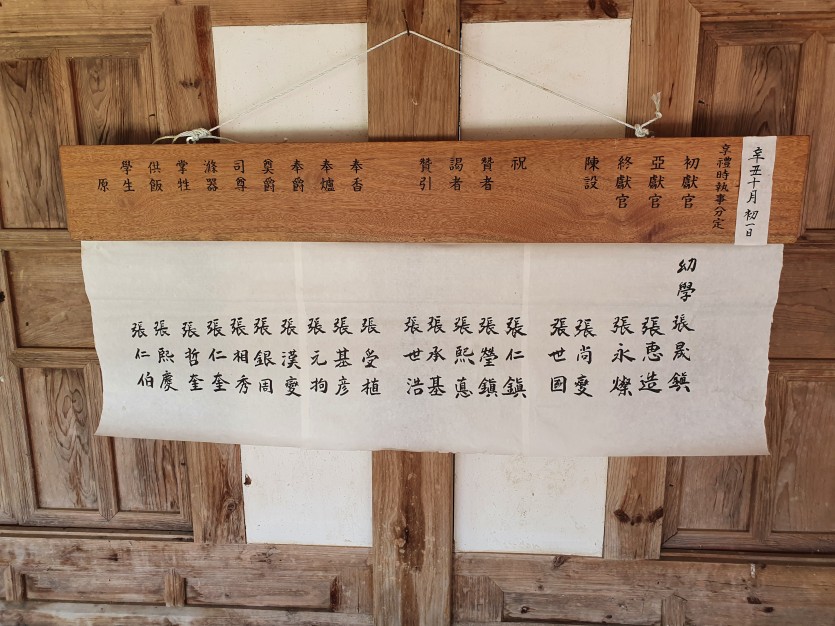 辛丑十月 初一日
享禮時執事分定
初獻官
亞獻官
終獻官
陳設
祝
贊者
謁者
贊引
奉香
奉爐
奉爵
奠爵
司尊
滌器
掌牲
供飯
學生
原
幼學 張晟鎭
張惠造
張永燦
張尚燮
張世国
張仁鎭
張瑩鎭
張熙悳
張承基
張世浩
張受植
張基彦
張元拘
張漢燮
張銀周
張相秀
張仁奎
張哲奎
張熙慶
張仁伯